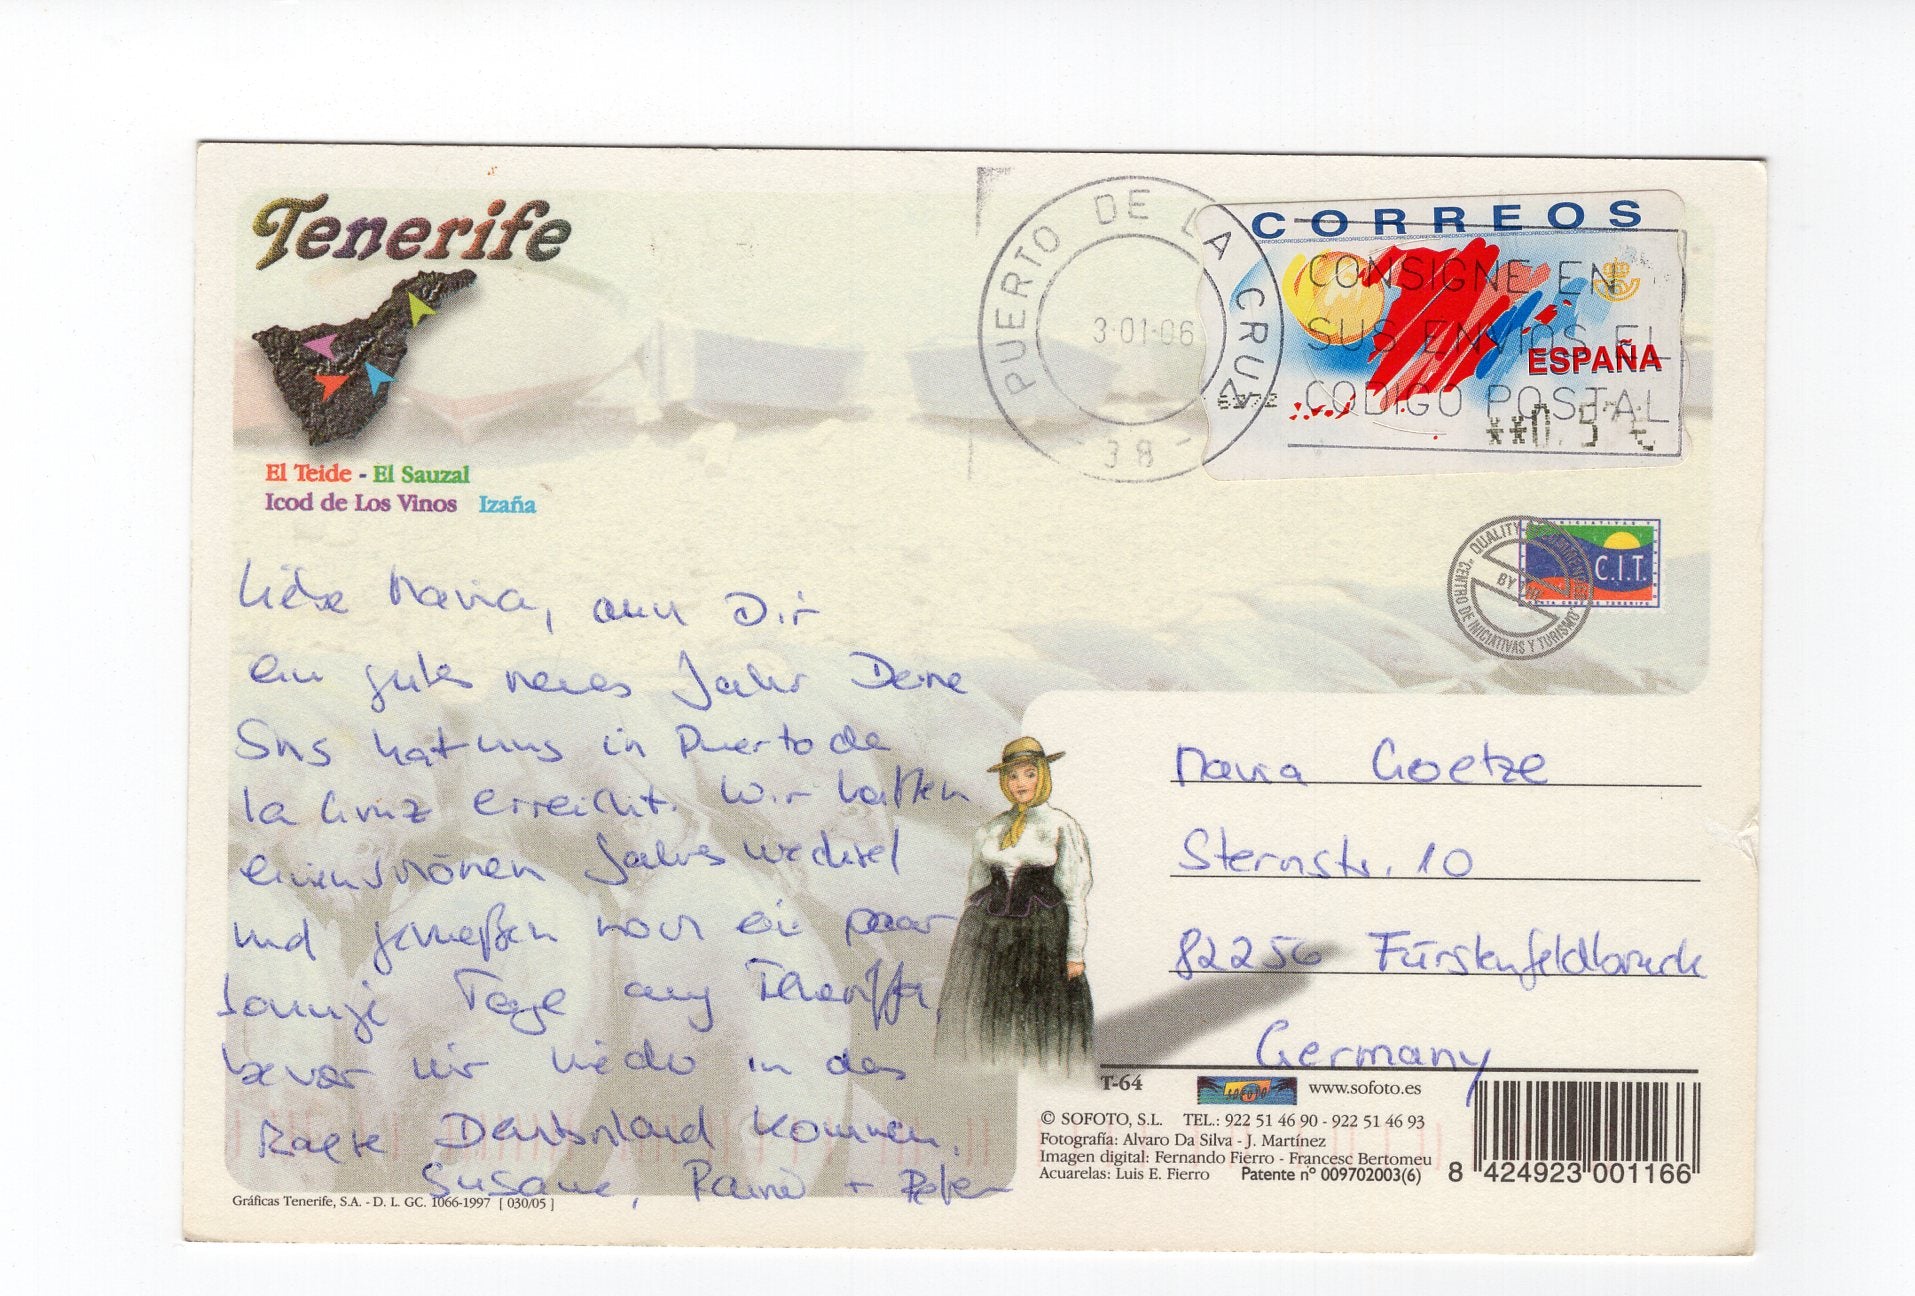 Tenerife
El Teide - El Sauzal
Icod de Los Vinos Izaña
PUERTO DE LA CRUZ
3-01-06
38
CORREOS
CONSIGNE EN
SUS ENVIOS EL
CODIGO POSTAL
ESPAÑA
QUALITY BY
"CENTRO DE INICIATIVAS Y TURISMO"
C.I.T.
SANTA CRUZ DE TENERIFE
Liebe Maria, auch Dir
ein gutes neues Jahr Deine
SMS hat uns in Puerto de
la Cruz erreicht. Wir hatten
einen schönen Jahreswechsel
und genießen noch ein paar
sonnige Tage auf Teneriffa,
bevor wir wieder in das
kalte Deutschland kommen.
Susanne, + Peter
Maria Goetze
Sternstr. 10
82256 Fürstenfeldbruck
Germany
T-64
SOFOTO
www.sofoto.es
© SOFOTO, S.L. TEL.: 922 51 46 90 - 922 51 46 93
Fotografía: Alvaro Da Silva - J. Martínez
Imagen digital: Fernando Fierro - Francesc Bertomeu
Acuarelas: Luis E. Fierro Patente nº 009702003(6)
8 424923 001166
Gráficas Tenerife, S.A. - D. L. GC. 1066-1997 [ 030/05 ]